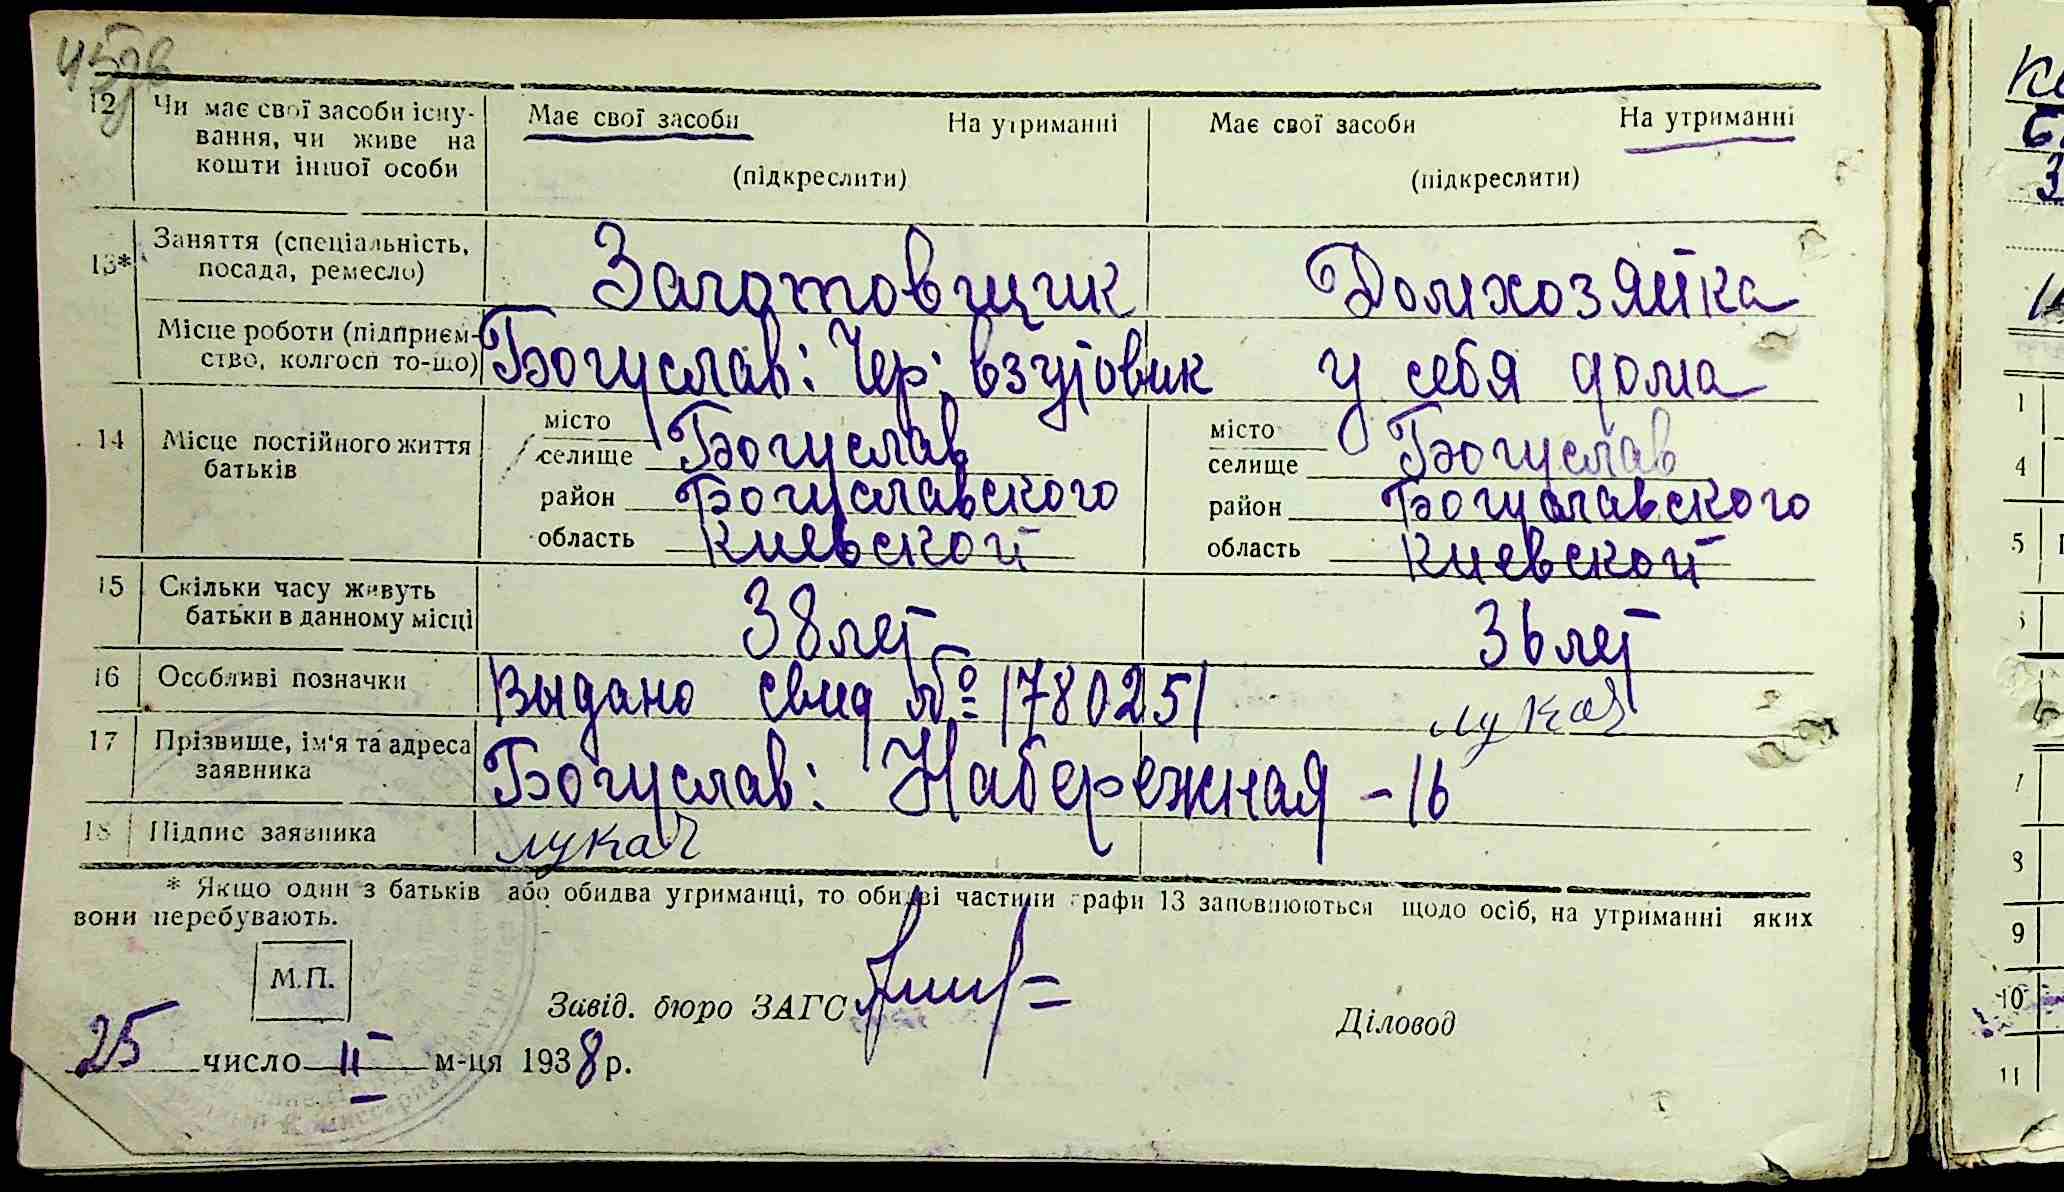 12 Чи має свої засоби існу- Має свої засоби На утриманні Має свої засоби На утриманні
вання, чи живе на
кошти іншої особи (підкреслити) (підкреслити)
13* Заняття (спеціальність, Заготовщик Домхозяйка
посада, ремесло)
Місце роботи (підприєм- Богуслав: Чер: взутовик у себя дома
ство, колгосп то-що)
14 Місце постійного життя місто місто
батьків селище Богуслав селище Богуслав
район Богуславского район Богуславского
область Киевской область Киевской
15 Скільки часу живуть 38 лет 36 лет
батьки в данному місці
16 Особливі позначки Выдано свид № 1780251 лукач
17 Прізвище, ім'я та адреса Богуслав: Набережная - 16
заявника
18 Підпис заявника лукач
* Якщо один з батьків або обидва утриманці, то обидві частини графи 13 заповнюються щодо осіб, на утриманні яких
вони перебувають.
М.П.
Завід. бюро ЗАГС Діловод
25 число II м-ця 1938 р.
1
4
5
8
9
10
11